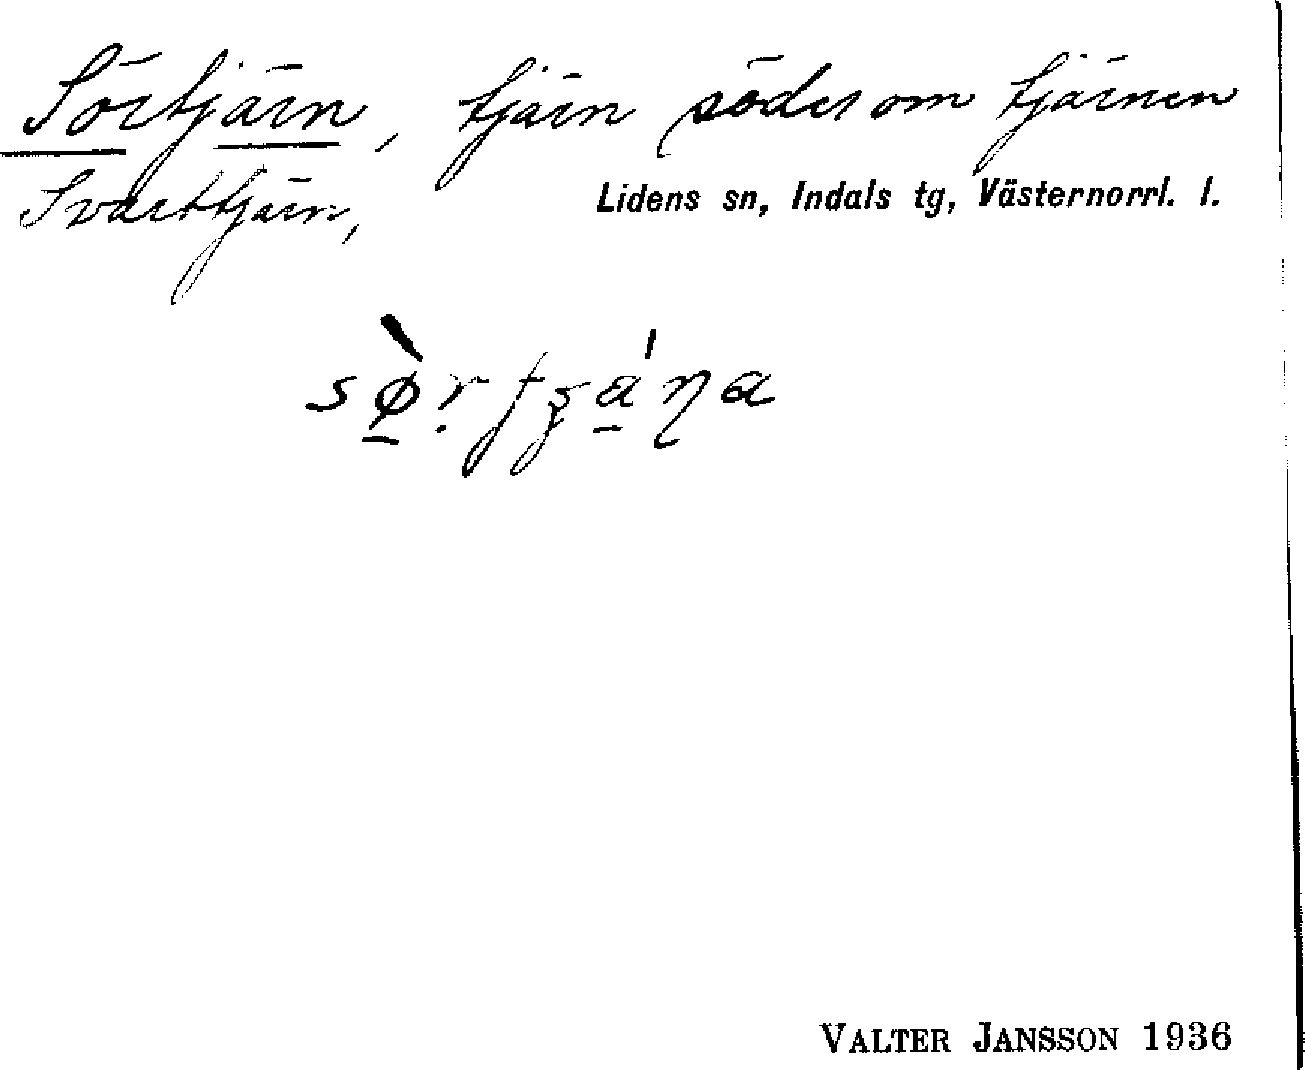 Sörtjärn, tjärn söder om tjärnen
Svarttjärn,
Lidens sn, Indals tg, Västernorrl. l.
VALTER JANSSON 1936